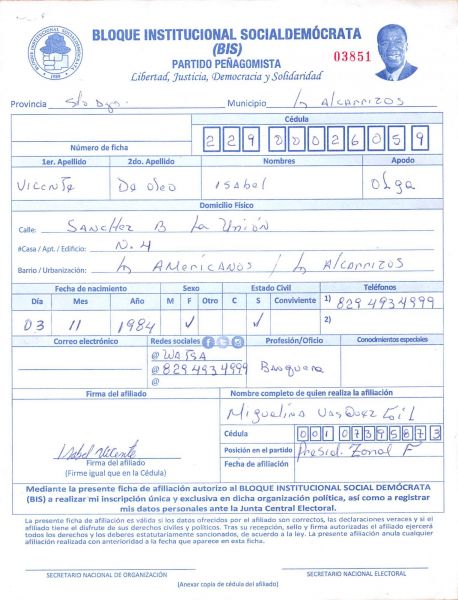 BLOQUE INSTITUCIONAL SOCIALDEMÓCRATA
(BIS)
PARTIDO PEÑAGOMISTA
Libertad, Justicia, Democracia y Solidaridad
03851
BLOQUE INSTITUCIONAL SOCIALDEMOCRATA
Provincia Sto Dgo. Municipio Los ALCARRIZOS
Cédula
Número de ficha 229 0002605 9
1er. Apellido 2do. Apellido Nombres Apodo
VICENTE De oleo ISABEL Olga
Domicilio Físico
Calle: SANCHEZ B La Unión
#Casa / Apt. / Edificio: N. 4
Barrio / Urbanización: Los AMERICANOS / Los ALCARRIZOS
Fecha de nacimiento Sexo Estado Civil Teléfonos
Día Mes Año M F Otro C S Conviviente 1) 829 493 4999
03 11 1984 ✓ ✓ 2)
Correo electrónico Redes sociales Profesión/Oficio Conodmientos especiales
@ WATSA
@ 829 493 4999 Banquera
@
Firma del afiliado Nombre completo de quien realiza la afiliación
Miguelina Vasquez
Cédula 001 0739587 3
Isabel Vicente Posición en el partido Presid. Zonal F
Firma del afiliado Fecha de afiliación
(Firma igual que en la Cédula)
Mediante la presente ficha de afiliación autorizo al BLOQUE INSTITUCIONAL SOCIAL DEMÓCRATA
(BIS) a realizar mi inscripción única y exclusiva en dicha organización política, así como a registrar
mis datos personales ante la Junta Central Electoral.
La presente ficha de afiliación es válida si los datos ofrecidos por el afiliado son correctos, las declaraciones veraces y si el
afiliado tiene el disfrute de sus derechos civiles y políticos. Tras su recepción, sello y firma autorizadas el afiliado ejercerá
todos los derechos y los deberes estatutariamente sancionados, de acuerdo a la ley. La presente afiliación anula cualquier
afiliación realizada con anterioridad a la fecha que aparece en esta ficha.
SECRETARIO NACIONAL DE ORGANIZACIÓN SECRETARIO NACIONAL ELECTORAL
(Anexar copia de cédula del afiliado)